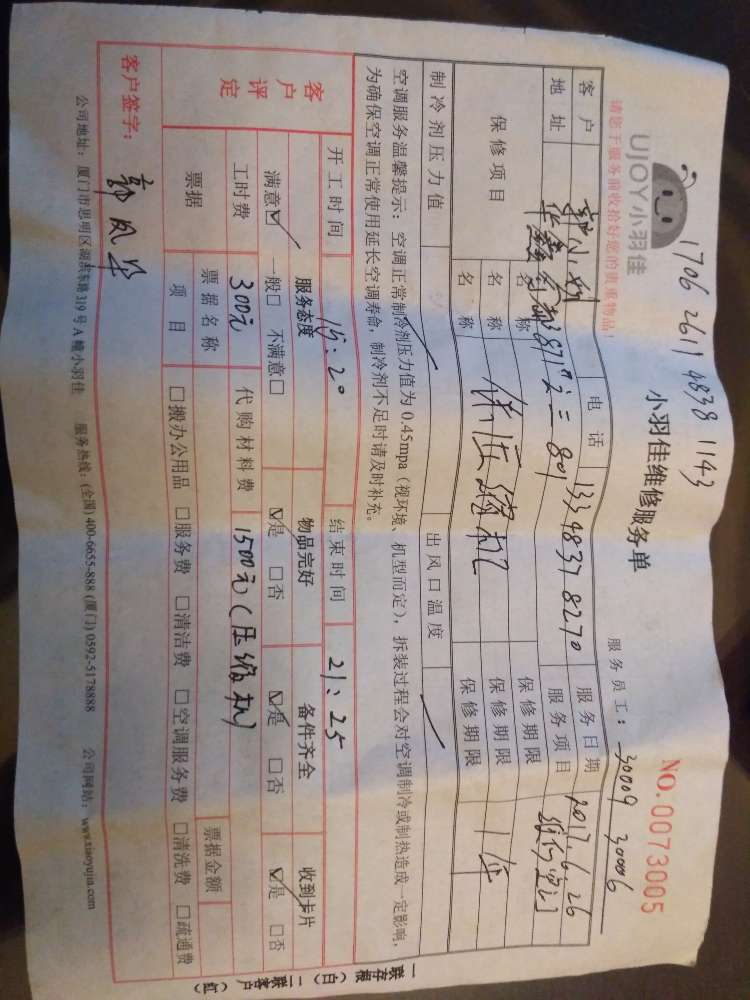 1706 2611 4838 1143
UJOY小羽佳
小羽佳维修服务单
NO.0073005
请您于服务前收拾好您的贵重物品！
服务员工：30009 30006
客户 郭小姐 电话 13348378270 服务日期 2017.6.26
地址 387 801 服务项目
保修项目 名称 保修期限
名称 修压缩机 保修期限 1年
名称 保修期限
制冷剂压力值 出风口温度
空调服务温馨提示：空调正常制冷剂压力值为0.45mpa（视环境、机型而定），拆装过程会对空调制冷或制热造成一定影响，
为确保空调正常使用延长空调寿命，制冷剂不足时请及时补充。
开工时间 15:20 结束时间 21:25
客户评定
服务态度 物品完好 备件齐全 收到卡片
满意☑ 一般□ 不满意□ ☑是 □否 ☑是 □否 ☑是 □否
工时费 300元 代购材料费 1500元（压缩机）
票据 票据名称 票据金额
项目 □搬办公用品 □服务费 □清洁费 □空调服务费 □清洗费 □疏通费
客户签字：郭凤华
公司地址：厦门市思明区湖滨东路319号A幢小羽佳 服务热线：(全国) 400-6655-888 (厦门) 0592-5178888 公司网站：www.xiaoyujia.com
一联存根（白） 二联客户（红）